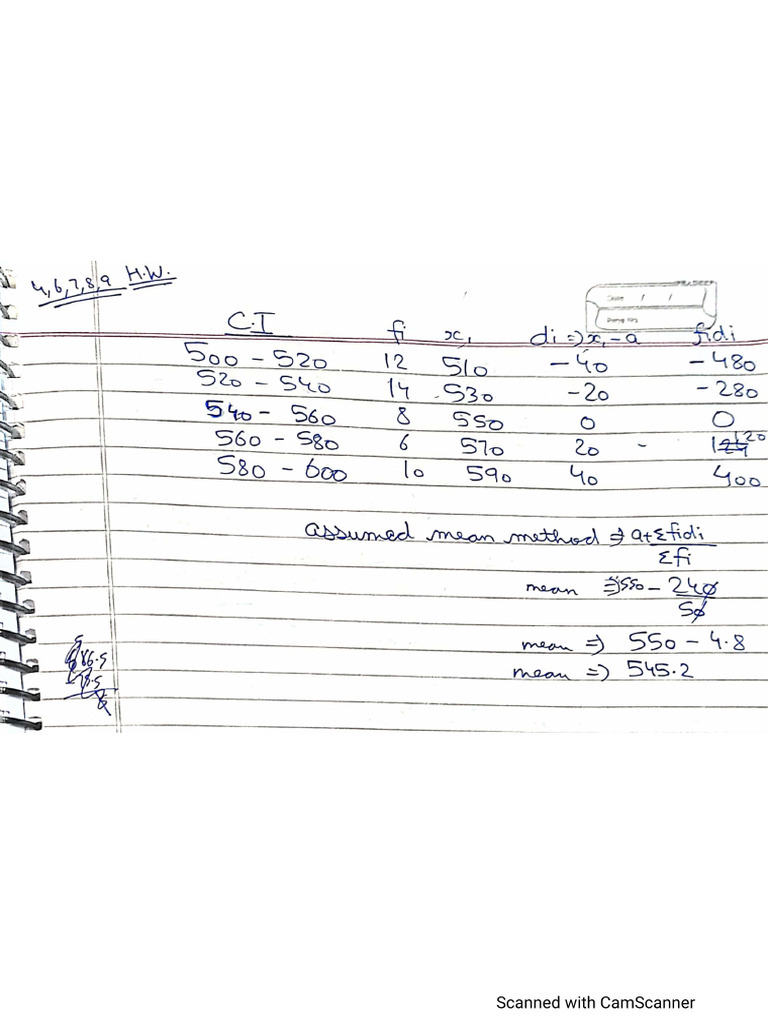 4,6,7,8,9 H.W.
Date / /
C.I fi xi di => xi - a fidi
500 - 520 12 510 - 40 - 480
520 - 540 14 530 - 20 - 280
540 - 560 8 550 0 0
560 - 580 6 570 20 - 120
580 - 600 10 590 40 400
assumed mean method => a+ Σfidi
Σfi
mean => 550 - 240
50
mean => 550 - 4.8
mean => 545.2
Scanned with CamScanner